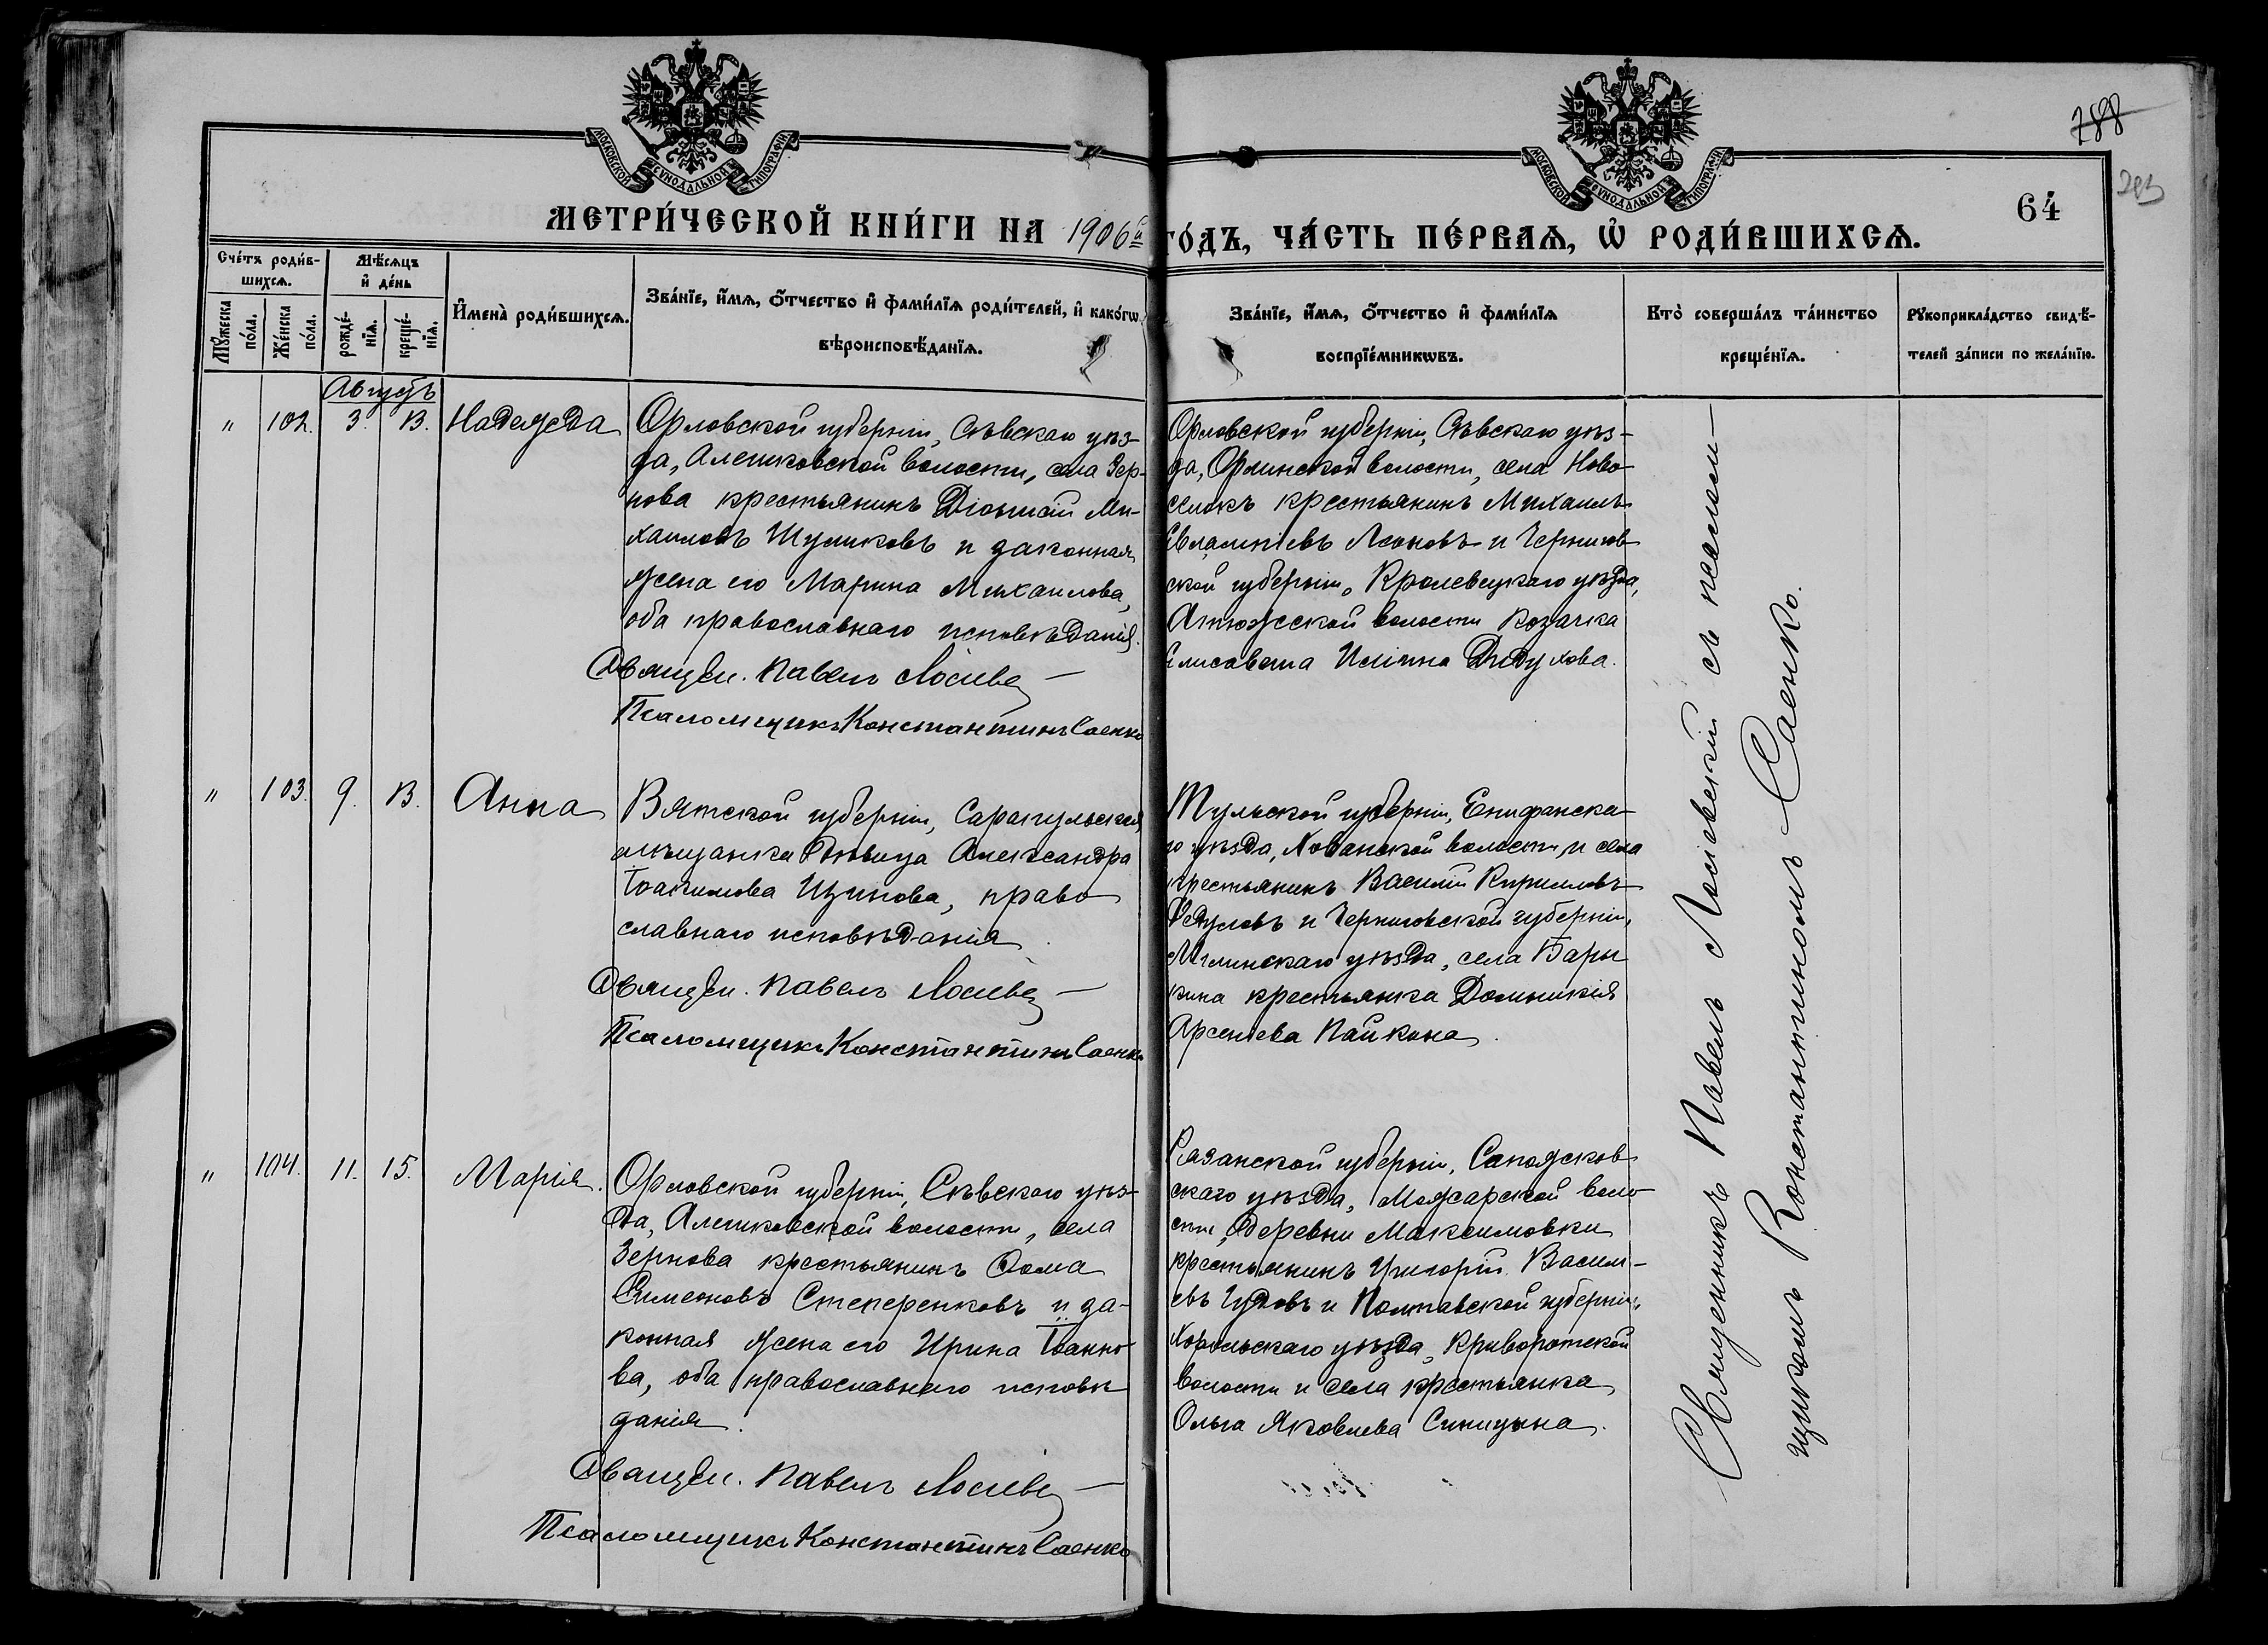 МОСКОВСКОЙ СѴНОДАЛЬНОЙ ТИПОГРАФІИ
МОСКОВСКОЙ СѴНОДАЛЬНОЙ ТИПОГРАФІИ
788
64
МЕТРИ́ЧЕСКОЙ КНИ́ГИ НА 1906й ГО́ДЪ, ЧА́СТЬ ПЕ́РВАЯ, Ѡ҆ РОДИ́ВШИХСЯ.
Сче́тъ роди́в-
шихся.
Мѣ́сяцъ
и҆ де́нь
Мꙋ́жеска по́ла.
Же́нска по́ла.
рожде́-
нїя.
креще́-
нїя.
И҆мена̀ роди́вшихся.
Зва́нїе, и҆́мя, ѻ҆́тчество и҆ фами́лїя роди́телей, и҆ како́гѡ
вѣроисповѣ́данїя.
Зва́нїе, и҆́мя, ѻ҆́тчество и҆ фами́лїя
воспрїе́мникѡвъ.
Кто̀ соверша́лъ та́инство
креще́нїя.
Рꙋкоприкла́дство свидѣ́-
телей за́писи по жела́нїю.
Августъ
" 102. 3. 13. Надежда
Орловской губерніи, Сѣвскаго уѣз-
да, Алешковской волости, села Зер-
нова крестьянинъ Діонисій Ми-
хаиловъ Шуликовъ и законная
жена его Марина Михаилова,
оба православнаго исповѣданія.
Священ. Павелъ Лосіев
Псаломщикъ Константинъ Саенко
Орловской губерніи, Сѣвскаго уѣз-
да, Орлинской волости, села Ново-
селокъ крестьянинъ Михаилъ
Евлампіевъ Леоновъ и Чернигов
ской губерніи, Кролевецкаго уѣзда,
Атюжеской волости козачка
Елисавета Иліина Дидухова.
" 103. 9. 13. Анна
Вятской губерніи, Сарапульская
мѣщанка дѣвица Александра
Іоакимова Изинова, право
славнаго исповѣданія.
Священ. Павелъ Лосіев
Псаломщикъ Константинъ Саенко
Тульской губерніи, Епифанска-
го уѣзда, Хованской волости и села
крестьянинъ Василій Кирилловъ
Федуловъ и Черниговской губерніи,
Мглинскаго уѣзда, села Бары
кина крестьянка Домникія
Арсеніева Пайкина.
" 104. 11. 15. Марія.
Орловской губерніи, Сѣвскаго уѣз-
да, Алешковской волости, села
Зернова крестьянинъ Ѳома
Симеоновъ Степеренковъ и за-
конная жена его Ирина Іоанно
ва, оба православнаго исповѣ
данія.
Священ. Павелъ Лосіев
Псаломщикъ Константинъ Саенко
Рязанской губерніи, Сапожков
скаго уѣзда, Можарской воло
сти, деревни Максимовки
крестьянинъ Григорій Василі-
евъ Гудовъ и Полтавской губерніи,
Хорольскаго уѣзда, Криворотской
волости и села крестьянка
Ольга Яковлева Синицына.
Священникъ Павелъ Лосіевскій съ псалом-
щикомъ Константиномъ Саенко.